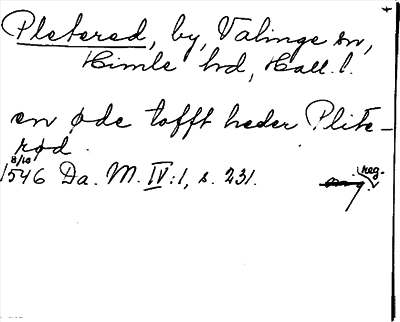 Pletered, by, Valinge sn,
Himle hd, Hall. l.
en øde tofft heder Plite-
rød.
8/10
1546 Da. M. IV:1, s. 231.
reg.